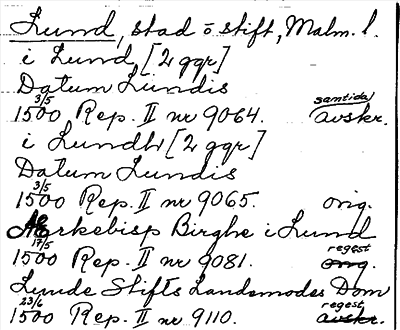 Lund, stad o stift, Malm. l.
i Lund [2 ggr]
Datum Lundis
1500 3/5 Rep. II nr 9064. samtida avskr.
i Lundh [2 ggr]
Datum Lundis
1500 3/5 Rep. II nr 9065. orig.
Ærkebisp Birghe i Lund
1500 17/5 Rep. II nr 9081. regest orig.
Lunde Stifts Landemodes Dom
1500 23/6 Rep. II nr 9110. regest, avskr.